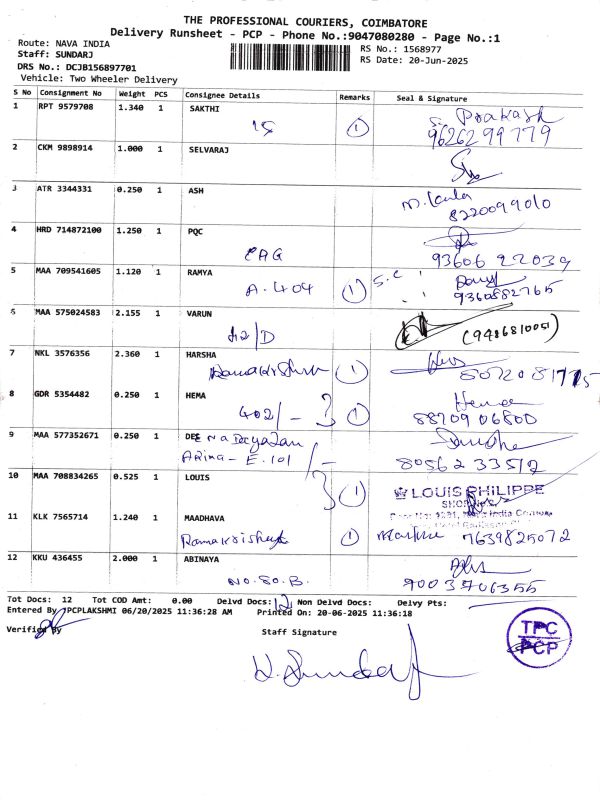 THE PROFESSIONAL COURIERS, COIMBATORE
Delivery Runsheet - PCP - Phone No.:9047080280 - Page No.:1
Route: NAVA INDIA
RS No.: 1568977
Staff: SUNDARJ
RS Date: 20-Jun-2025
DRS No.: DCJB156897701
Vehicle: Two Wheeler Delivery
S No Consignment No Weight PCS Consignee Details Remarks Seal & Signature
1 RPT 9579708 1.340 1 SAKTHI
S. Prakash
18 1 9626299779
2 CKM 9898914 1.000 1 SELVARAJ
3 ATR 3344331 0.250 1 ASH
8220099010
4 HRD 714872100 1.250 1 PQC
EAG 93606 22039
5 MAA 709541605 1.120 1 RAMYA
A. 404 1 9360882765
6 MAA 575024583 2.155 1 VARUN
(9486810051)
7 NKL 3576356 2.360 1 HARSHA
1
8 GDR 5354482 0.250 1 HEMA
Hema
402/- 1 88709 06800
9 MAA 577352671 0.250 1 DEE Na Dayalan
E. 101 80562 33512
10 MAA 708834265 0.525 1 LOUIS
1 LOUIS PHILIPPE
11 KLK 7565714 1.240 1 MAADHAVA
1 7639825072
12 KKU 436455 2.000 1 ABINAYA
NO. 80. B. 9003706355
Tot Docs: 12 Tot COD Amt: 0.00 Delvd Docs: 12 Non Delvd Docs: Delvy Pts:
Entered By :PCPLAKSHMI 06/20/2025 11:36:28 AM Printed On: 20-06-2025 11:36:18
Verified By Staff Signature
TPC
PCP